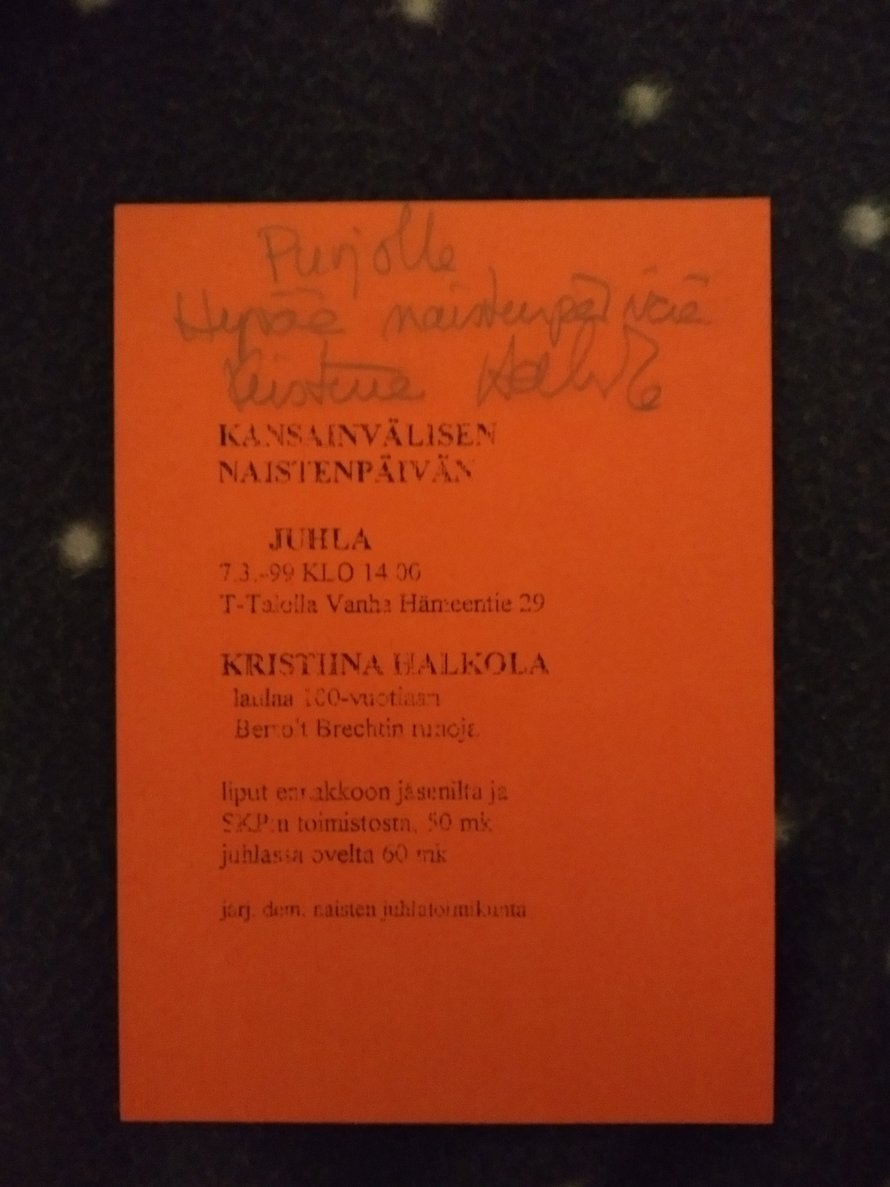 Purjolle
Hyvää naistenpäivää
Kristiina Halkola
KANSAINVÄLISEN
NAISTENPÄIVÄN
JUHLA
7.3.-99 KLO 14.00
T-Talolla Vanha Hämeentie 29
KRISTIINA HALKOLA
laulaa 100-vuotiaan
Bertolt Brechtin runoja
liput ennakkoon jäseniltä ja
SKP:n toimistosta, 50 mk
juhlassa ovelta 60 mk
järj. dem. naisten juhlatoimikunta